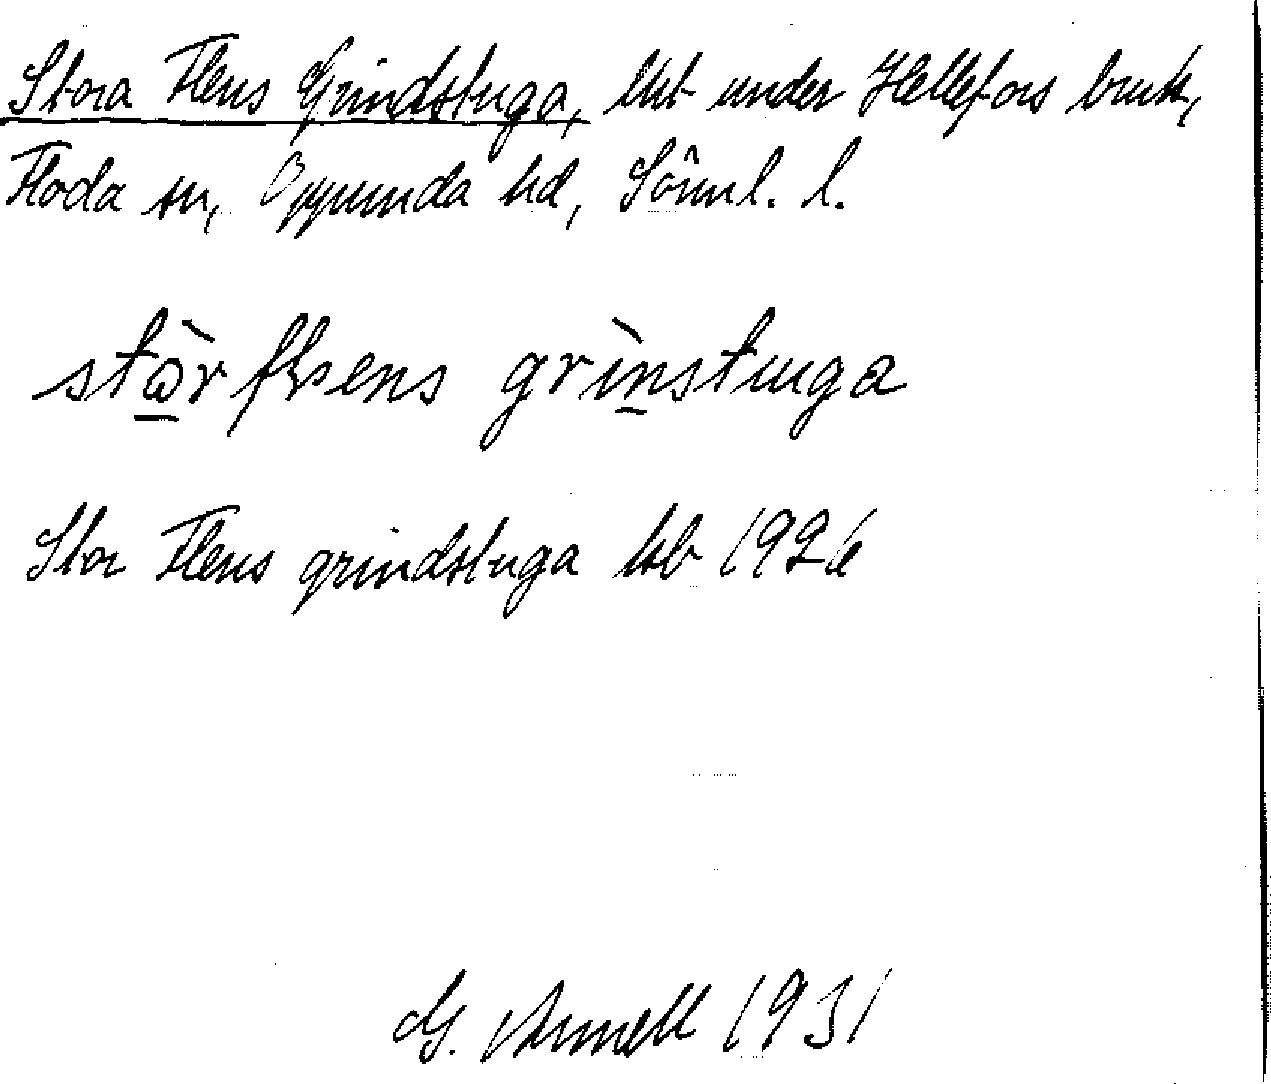 Stora Flens Grindstuga, lht under Hellefors bruk,
Floda sn, Oppunda hd, Sörml. l.
stὼr flens grìnstuga
Stor Flens grindstuga hb 1926
G. Arnell 1931